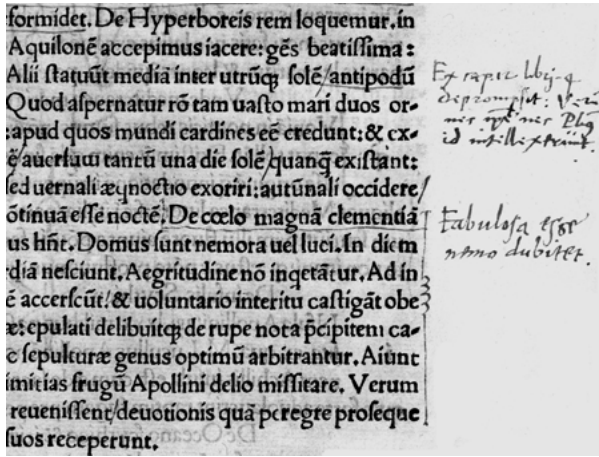 formidet. De Hyperboreis rem loquemur, in
Aquilonē accepimus iacere: gēs beatiſſima:
Alii ſtatuūt mediā inter utrūq; ſolē/antipodū
Quod aſpernatur rō tam uaſto mari duos or-
:apud quos mundi cardines eē credunt: & ex-
ē/auerſum tantū una die ſolē/quanq̄ exiſtant:
ſed uernali æqnoctio exoriri: autūnali occidere/
ōtinuā eſſe noctē. De cœlo magnā clementiā
us hn̄t. Domus ſunt nemora uel luci. In diem
rdiā neſciunt. Aegritudine nō inqetātur. Ad in
ē accerſcūt/& uoluntario interitu caſtigāt obe
æ: epulati delibuitq; de rupe nota p̄cipitem ca-
c ſepulturæ genus optimū arbitrantur. Aiunt
imitias frugū Apollini delio miſſitare. Verum
reueniſſent/deuotionis quā peregre proſeque
ſuos receperunt.
deprompsit: Verū
nec ipſe nec
id intellexerunt.
Fabuloſa eſſe
nemo dubitet.